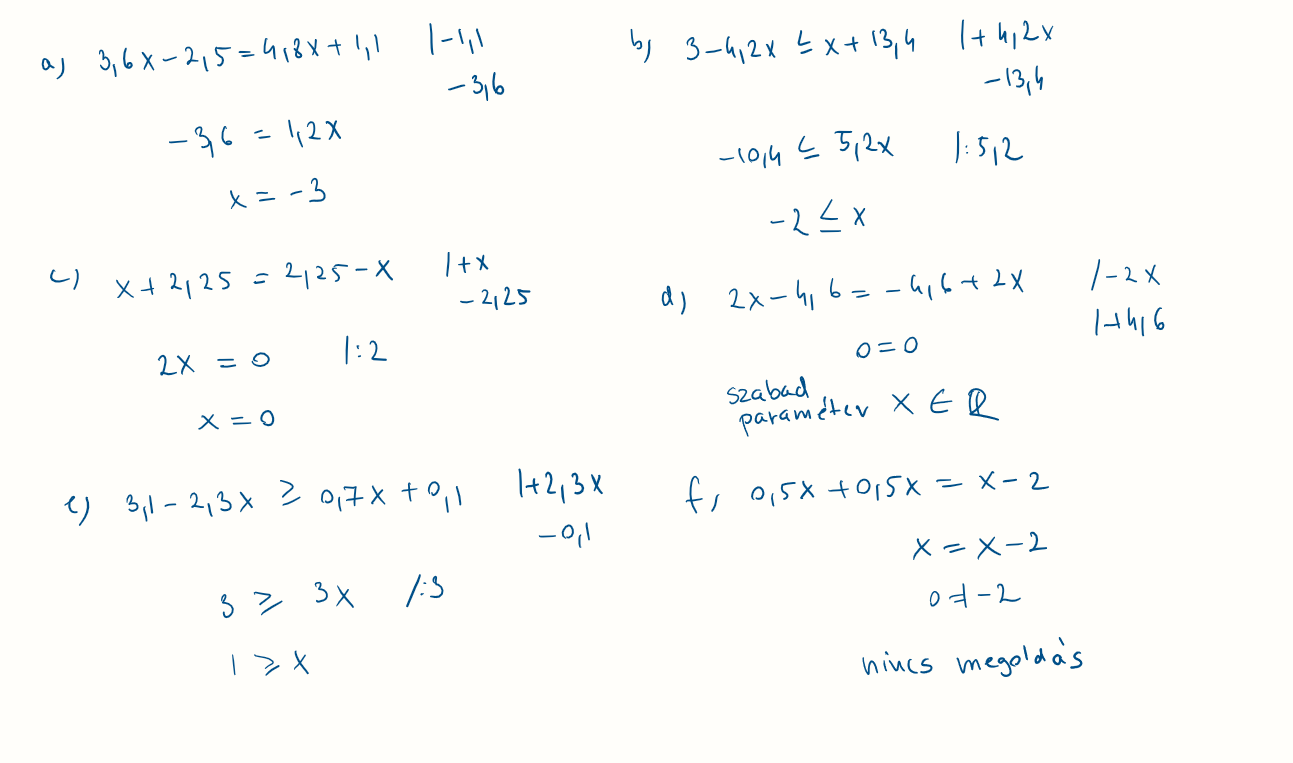 a) 3,6x - 2,5 = 4,8x + 1,1 |-1,1
-3,6
-3,6 = 1,2x
x = -3
b) 3 - 4,2x ≤ x + 13,4 |+ 4,2x
-13,4
-10,4 ≤ 5,2x |: 5,2
-2 ≤ x
c) x + 2,25 = 2,25 - x |+x
-2,25
2x = 0 |:2
x = 0
d) 2x - 4,6 = -4,6 + 2x |-2x
|+4,6
0 = 0
szabad
paraméter x ∈ ℝ
e) 3,1 - 2,3x ≥ 0,7x + 0,1 |+2,3x
-0,1
3 ≥ 3x |:3
1 ≥ x
f, 0,5x + 0,5x = x - 2
x = x - 2
0 ≠ -2
nincs megoldás